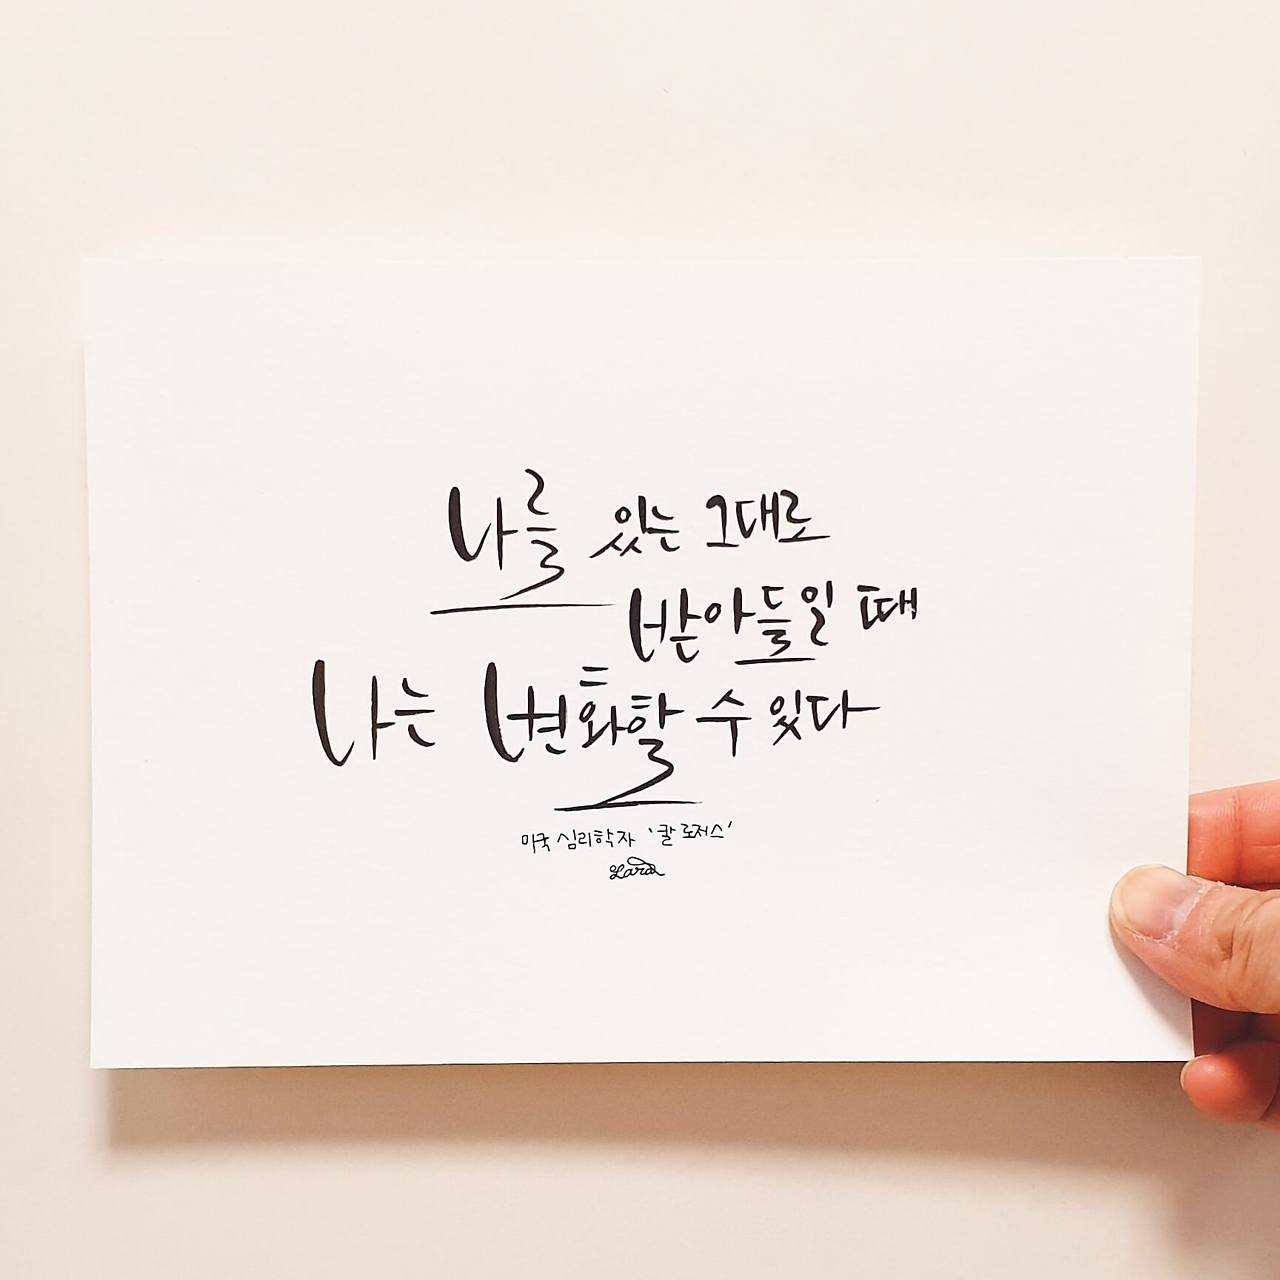 나를 있는 그대로
받아들일 때
나는 변화할 수 있다
미국 심리학자 '칼 로저스'
Lara